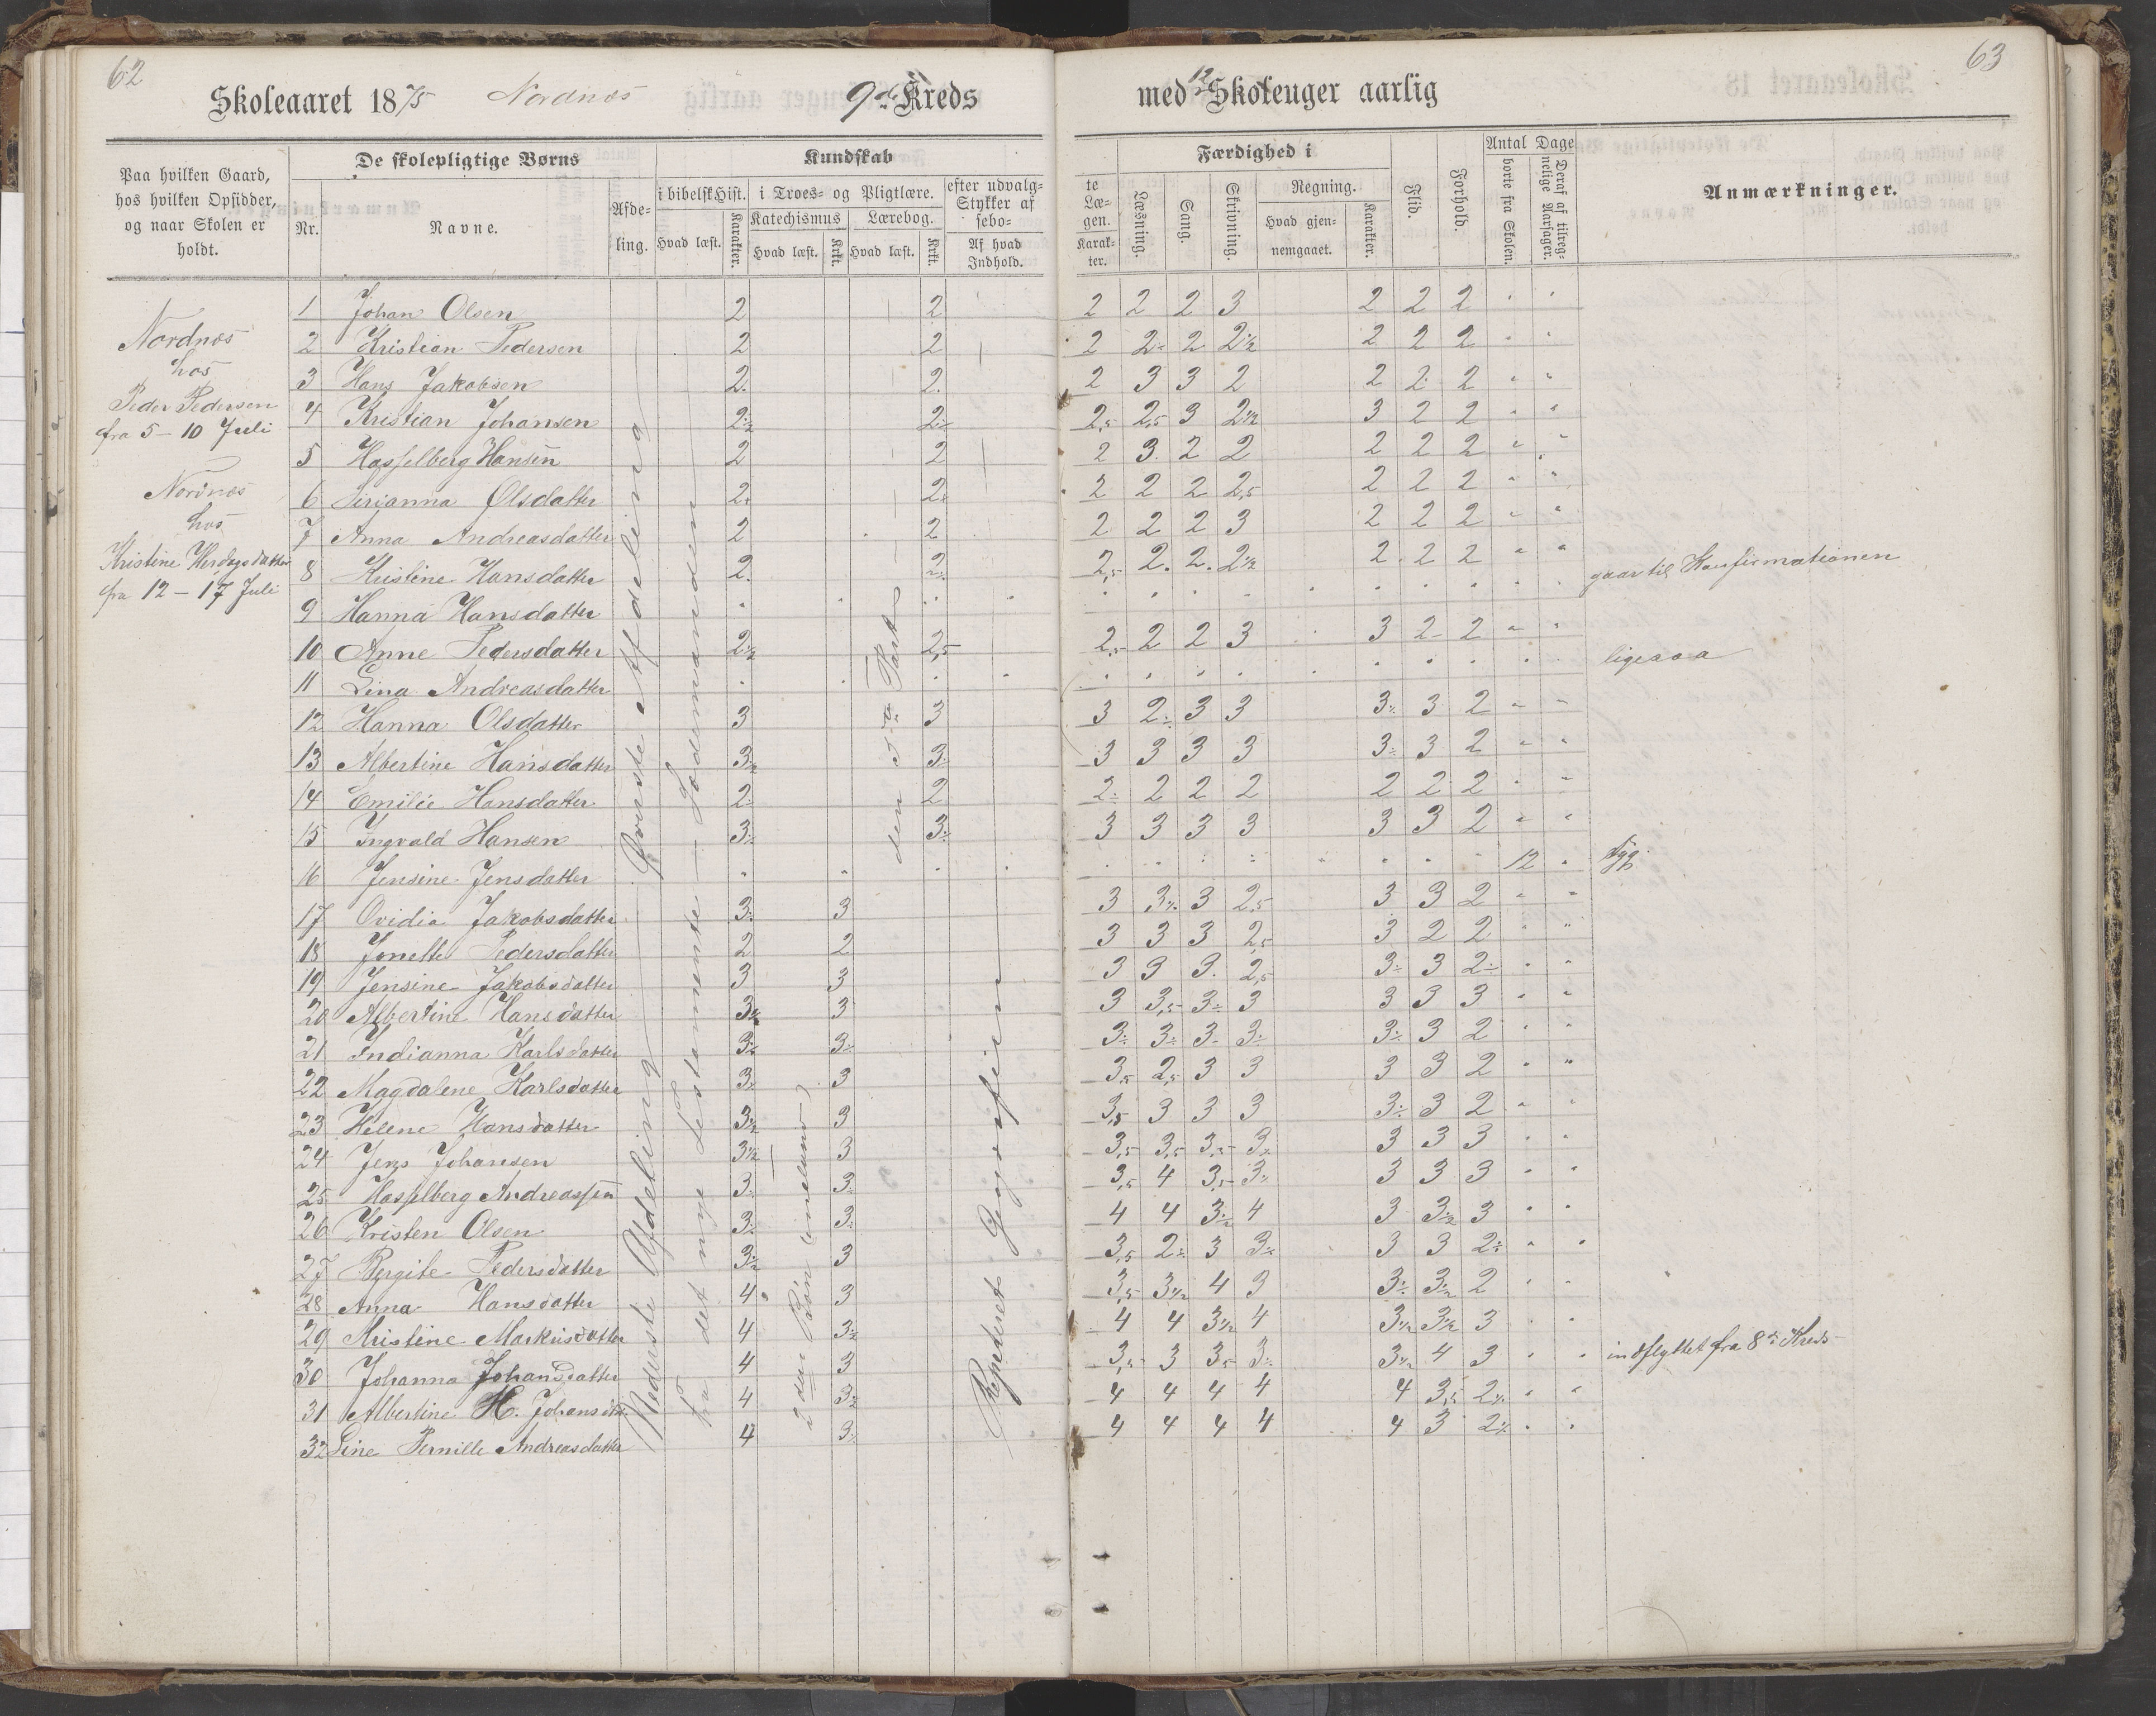 62
63
Skoleaaret 1875 Nordnæs 9de Kreds med 12 Skoleuger aarlig
Paa hvilken Gaard, hos hvilken Opsidder, og naar Skolen er holdt.
De skolepligtige Børns
Nr.
Navne.
Afdeling.
Kundskab
i bibelsk Hist.
Hvad læst.
Karakter.
i Troes- og Pligtlære.
Katechismus
Hvad læst.
Krkt.
Lærebog.
Hvad læst.
Krkt.
efter udvalgte Stykker af Læsebogen.
Af hvad Indhold.
Karakter.
Færdighed i
Læsning.
Sang.
Skrivning.
Regning.
Hvad gjennemgaaet.
Karakter.
Flid.
Forhold.
Antal Dage
borte fra Skolen.
Deraf af tilregnelige Aarsager.
Anmærkninger.
Nordnæs
hos
Peder Pedersen
fra 5 – 10 Juli
Nordnæs
hos
Kristine
fra 12 – 17 Juli
Øverste Afdeling
Nederste Afdeling
fra det nye Testamente – Lødemanden
den 3die Part
2den Bøn
Repeteret Geografien
1 Johan Olsen 2 2 2 2 2 3 2 2 2 " "
2 Kristian Pedersen 2 2 2 2÷ 2 2½ 2 2 2 " "
3 Hans Jakobsen 2. 2. 2 3 3 2 2 2 2 " "
4 Kristian Johansen 2½ 2÷ 2,5 2,5 3 2½ 3 2 2 " "
5 Hasselberg Hansen 2 2 2 3 2 2 2 2 2 " "
6 Sirianna Olsdatter 2. 2. 2 2 2 2,5 2 2 2 " "
7 Anna Andreasdatter 2 2 2 2 2 3 2 2 2 " "
8 Kristine Hansdatter 2. 2÷ 2,5 2. 2. 2½ 2 2 2 " "
9 Hanna Hansdatter " " " " " " " " " " " gaar til Konfirmationen
10 Anne Pedersdatter 2½ 2,5 2,5 2 2 3 3 2 2 " "
11 Lina Andreasdatter " " " " " " " " " " " ligesaa
12 Hanna Olsdatter 3 3 3 2÷ 3 3 3÷ 3 2 " "
13 Albertine Hansdatter 3½ 3÷ 3 3 3 3 3÷ 3 2 " "
14 Emilie Hansdatter 2÷ 2 2÷ 2 2 2 2 2 2 " "
15 Ingvald Hansen 3÷ 3÷ 3 3 3 3 3 3 2 " "
16 Jensine Jensdatter " " " " " " " " " 12 " syg
17 Ovidia Jakobsdatter 3÷ 3 3 3÷ 3 2,5 3 3 2 " "
18 Jonette Pedersdatter 2 2 3 3 3 2,5 3 2 2 " "
19 Jensine Jakobsdatter 3 3 3 3 3. 2,5 3÷ 3 2÷ " "
20 Albertine Hansdatter 3½ 3 3 3,5 3÷ 3 3 3 3 " "
21 Indianna Karlsdatter 3÷ 3÷ 3÷ 3÷ 3÷ 3÷ 3÷ 3 2 " "
22 Magdalene Karlsdatter 3÷ 3 3,5 2,5 3 3 3 3 2 " "
23 Helene Hansdatter 3½ 3 3,5 3 3 3 3÷ 3 2 " "
24 Jens Johansen 3½ 3 3,5 3,5 3,5 3÷ 3 3 3 " "
25 Hasselberg Andreassen 3÷ 3÷ 3,5 4 3,5 3÷ 3 3 3 " "
26 Kristen Olsen 3÷ 3÷ 4 4 3½ 4 3 3½ 3 " "
27 Bergite Pedersdatter 3½ 3 3,5 2÷ 3 3÷ 3 3 2÷ " "
28 Anna Hansdatter 4 3 3,5 3½ 4 3 3÷ 3½ 2 " "
29 Kristine Markusdatter 4 3½ 4 4 3½ 4 3½ 3½ 3 " "
30 Johanna Johansdatter 4 3 3,5 3 3,5 3÷ 3½ 4 3 " " indflyttet fra 8de Kreds
31 Albertine H. Johansdtr. 4 3½ 4 4 4 4 4 3,5 2÷ " "
32 Line Pernille Andreasdatter 4 3÷ 4 4 4 4 4 3 2÷ " "